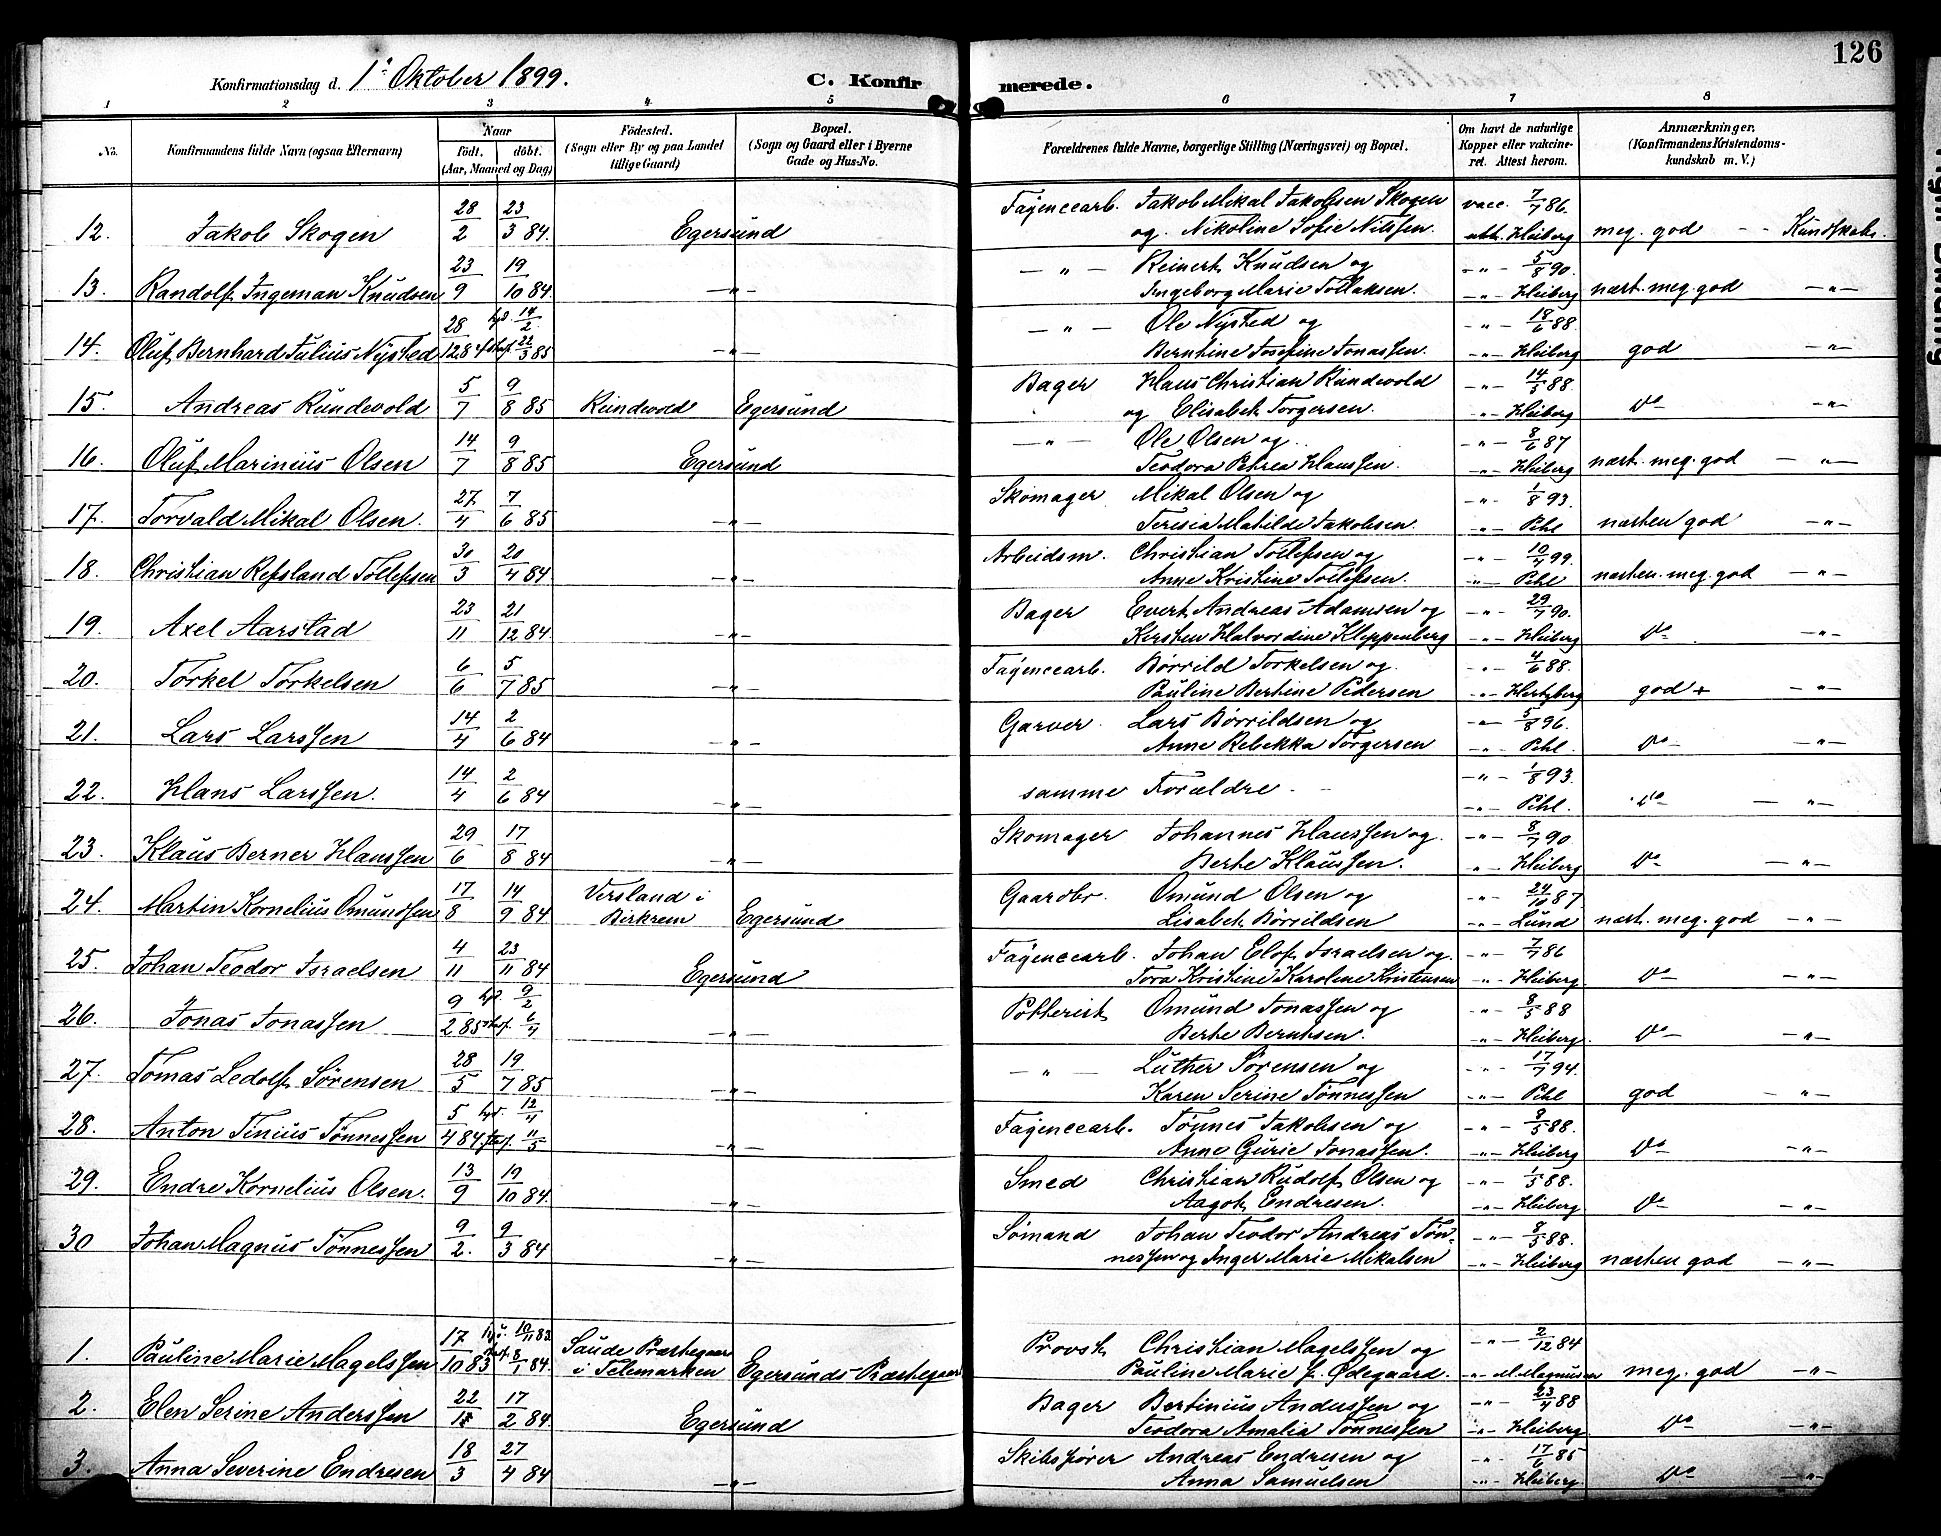 126
Konfirmationsdag d. 1ᵉ Oktober 1899. C. Konfirmerede.
1 2 3 4. 5 6 7 8
No. Konfirmandens fulde Navn (ogsaa Efternavn) Naar födt. döbt. (Aar, Maaned og Dag) Födested. (Sogn eller By og paa Landet tillige Gaard) Bopæl. (Sogn og Gaard eller i Byerne Gade og Hus-No. Forældrenes fulde Navne, borgerlige Stilling (Næringsvei) og Bopæl. Om havt de naturlige Kopper eller vakcineret. Attest herom. Anmærkninger. (Konfirmandens Kristendomskundskab m. V.)
12. Jakob Skogen 28/2 23/3 84. Egersund Fayencearb. Jakob Mikal Jakobsen Skogen og Nikoline Sofie Nilssen. vacc. 7/7 86. att. Heiberg meg. god - - Kundskabs.
13. Randolf Ingeman Knudsen 23/9 19/10 84. —"— —"— Reinert Knudsen og Ingeborg Marie Tollaksen. -"- 5/8 90. -"- Heiberg næst. meg. god —"—
14. Oluf Bernhard Julius Nysted 28/12 84 hjd 14/2. stf. 22/3 85 —"— —"— Ole Nysted og Berntine Josefine Jonassen. -"- 18/6 88. -"- Heiberg god —"—
15. Andreas Rundevold 5/7 9/8 85 Rundevold Egersund Bager Hans Christian Rundevold og Elisabet Torgersen. -"- 14/5 88. -"- Heiberg Do —"—
16. Oluf Marinius Olsen 14/7 9/8 85 Egersund —"— Ole Olsen og Teodora Petrea Hanssen. -"- 8/6 87 -"- Heiberg næst. meg. god —"—
17. Torvald Mikal Olsen. 27/4 7/6 85 —"— Skomager Mikal Olsen og Teresia Matilde Jakobsen. -"- 1/8 93. -"- Pihl næsten god —"—
18. Christian Refsland Tollefsen 30/3 20/4 84 —"— Arbeidsm. Christian Tollefsen og Anne Kristine Tollefsen. -"- 10/4 99. -"- Pihl næsten. meg. god —"—
19. Axel Aarstad 23/11 21/12 84. —"— Bager Evert Andreas Adamsen og Kirsten Halvordine Kleppenberg -"- 29/7 90. -"- Heiberg Do —"—
20. Torkel Torkelsen 6/6 5/7 85 —"— Fayencearb. Børrild Torkelsen og Pauline Bertine Pedersen -"- 4/6 88. -"- Hertzberg god + —"—
21. Lars Larssen 14/4 2/6 84 —"— Garver Lars Børrildsen og Anne Rebekka Torgersen -"- 5/8 96. -"- Pihl. Do —"—
22. Hans Larssen. 14/4 2/6 84 —"— samme Forældre -"- 1/8 93. -"- Pihl. Do —"—
23. Klaus Berner Hanssen 29/6 17/8 84 —"— Skomager Johannes Hanssen og Berte Klaussen. -"- 8/7 90. -"- Heiberg Do —"—
24. Martin Kornelius Omundsen 17/8 14/9 84 Versland i Birkrem Egersund Gaardbr. Omund Olsen og Lisabet Børrildsen -"- 24/10 87. -"- Lund næst. meg. god —"—
25. Johan Teodor Israelsen 4/11 23/11 84 Egersund Fayencearb. Johan Elof Israelsen og Tora Kristine Karoline Kristensen -"- 7/7 86 -"- Heiberg. Do —"—
26. Jonas Jonassen 9/2 85 hjd. 9/2 stf. 6/4 —"— Potterist Omund Jonassen og Berte Berntsen. -"- 8/5 88 -"- Heiberg. Do —"—
27. Tomas Ledolf Sørensen 28/5 19/7 85 —"— —"— Luther Sørensen og Karen Serine Tønnessen -"- 17/7 94. -"- Pihl god —"—
28. Anton Tinius Tønnessen 5/4 84 hjd. 12/4 stf. 11/5 —"— Fayencearb. Tønnes Jakobsen og Anne Gurie Jonassen. -"- 8/5 88. -"- Heiberg Do —"—
29. Endre Kornelius Olsen. 13/9 19/10 84. —"— Smed Christian Rudolf Olsen og Aagot Endresen. -"- 1/5 88. -"- Heiberg Do —"—
30 Johan Magnus Tønnessen 9/2. 9/3 84 —"— Sømand Johan Teodor Andreas Tønnessen og Inger Marie Mikalsen -"- 8/5 88. -"- Heiberg næsten god —"—
1. Pauline Marie Magelssen 17/10 83 10/11 83. 8/1 84. Saude Præstegaar i Telemarken Egersunds Præstegaar Provst Christian Magelssen og Pauline Marie f. Ødegaard. -"- 2/12 84 -"- M. Magnussen meg. god —"—
2. Elen Serine Anderssen 22/1 17/2 84. Egersund Bager Bertinius Anderssen og Teodora Amalia Tønnessen -"- 23/4 88 -"- Heiberg Do —"—
3. Anna Severine Endresen 18/3 27/4 84 —"— Skibsfører Andreas Endresen og Anna Samuelsen -"- 17/6 85 -"- Heiberg. Do —"—